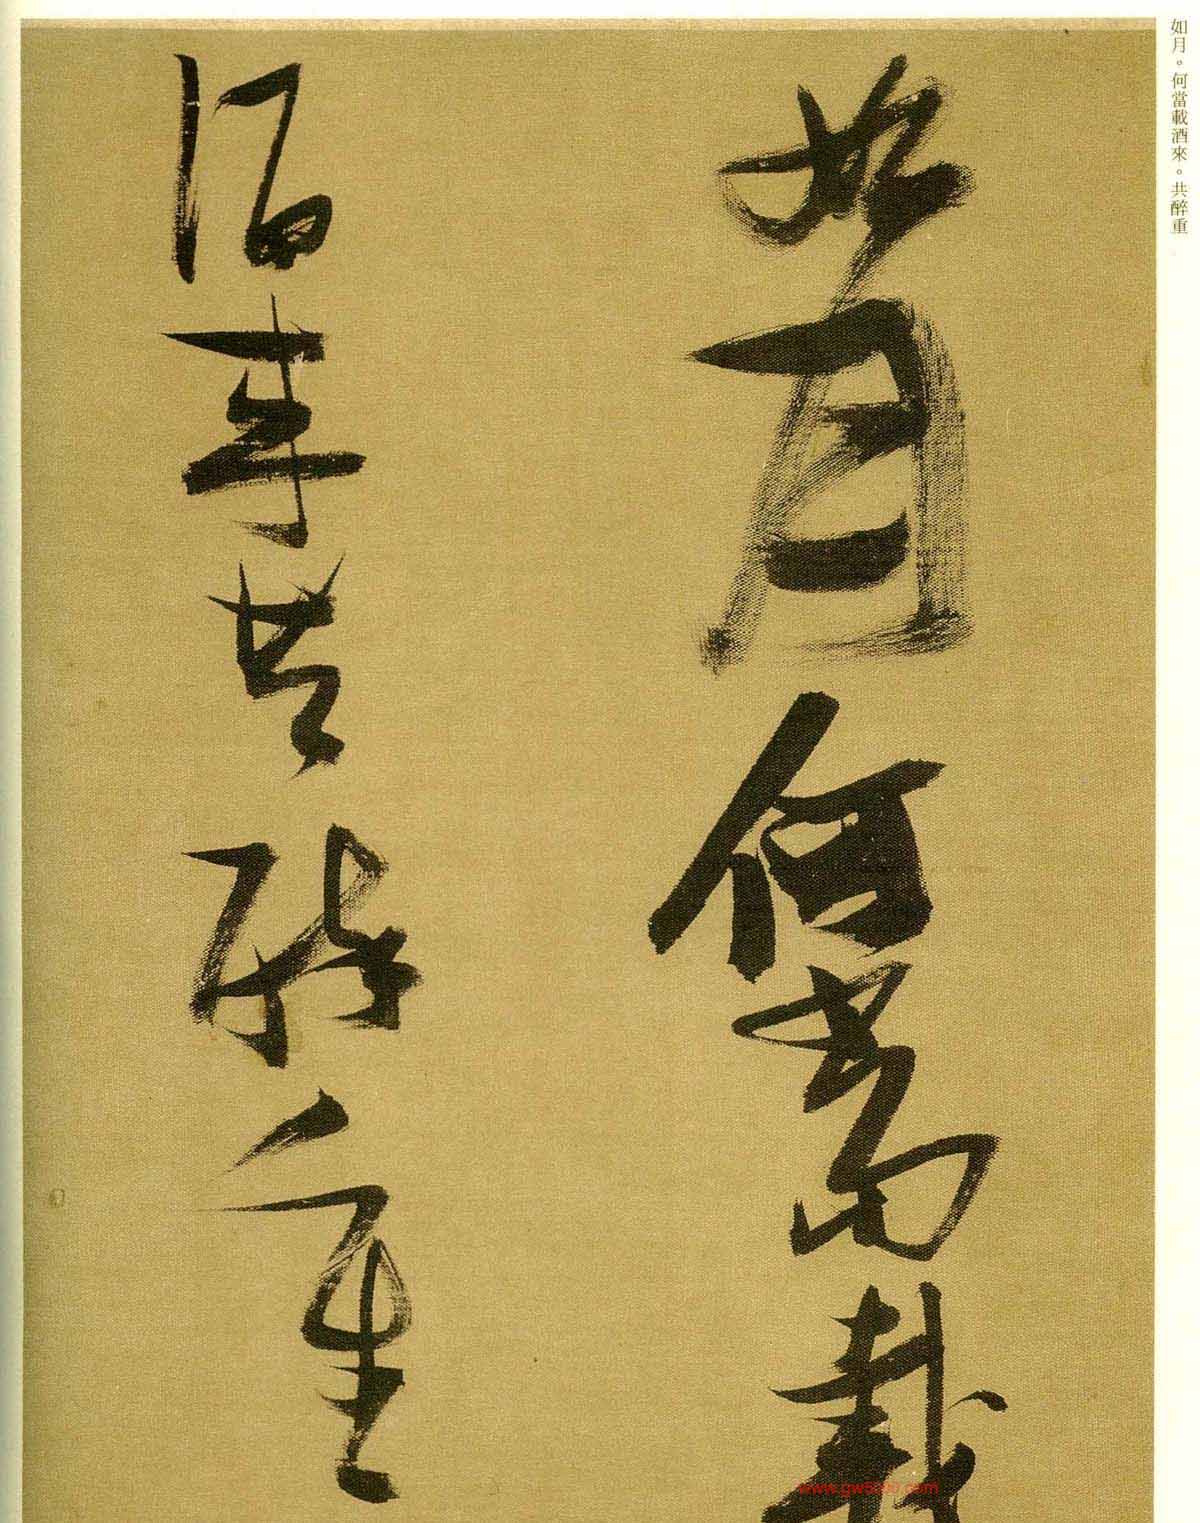 如月。何當載酒來。共醉重
如月何當載
酒來共醉重